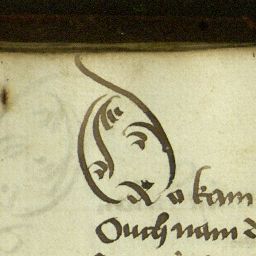 Do kam
Ouch nam d